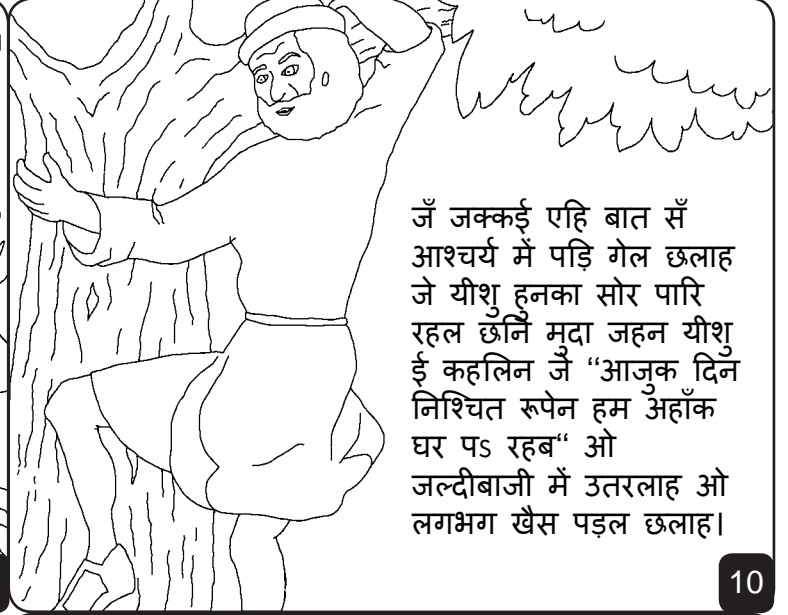 जँ जक्कई एहि बात सँ
आश्चर्य में पड़ि गेल छलाह
जे यीशु हुनका सोर पारि
रहल छनि मुदा जहन यीशु
ई कहलिन जे “आजुक दिन
निश्चित रूपेन हम अहाँक
घर पऽ रहब“ ओ
जल्दीबाजी में उतरलाह ओ
लगभग खैस पड़ल छलाह।
10